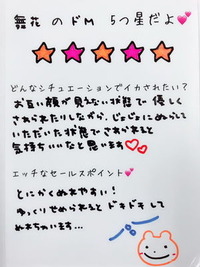 舞花 のドM 5つ星だよ💕
どんなシチュエーションでイカされたい?
お互い顔が見えない状態で 優しく
さわられたりしながら、じょじょにぬらして
いただいた状態で さわられると
気持ちいいなと思います♡♡
エッチなセールスポイント💕
とにかくぬれやすい!
ゆっくりせめられると ドキドキ して
ぬれちゃいます…